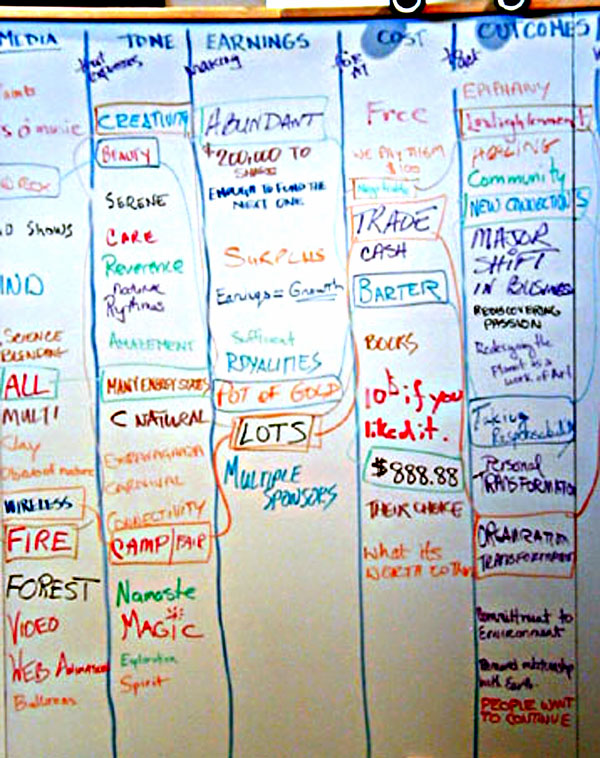 MEDIA
music
SHOWS
SCIENCE
BLENDING
ALL
MULTI
Clay
Objects of nature
WIRELESS
FIRE
FOREST
VIDEO
WEB ANIMATION
TONE
that expresses
CREATIVITY
BEAUTY
SERENE
CARE
Reverence
Natural
Rythms
AMAZEMENT
MANY ENERGY STATES
C NATURAL
EXTRAVAGANZA
CARNIVAL
CONNECTIVITY
CAMP/FAIR
Namaste
MAGIC
Exploration
Spirit
EARNINGS
making
ABUNDANT
$200,000 TO
SHARE
ENOUGH TO FUND THE
NEXT ONE
SURPLUS
Earnings = Growth
Sufficient
ROYALITIES
POT OF GOLD
LOTS
MULTIPLE
SPONSORS
COST
FOR
AT
Free
WE PAY THEM
$100
Negotiable
TRADE
CASH
BARTER
BOOKS
10$ if you
liked it.
$888.88
THEIR CHOICE
What its
WORTH TO THEM
OUTCOMES
that
EPIPHANY
Enlightenment
HEALING
Community
NEW CONNECTIONS
MAJOR
SHIFT
IN BUSINESS
REDISCOVERING
PASSION
Redesigning the
Planet as a
work of Art
Taking
Responsibility
Personal
TRANSFORMATION
ORGANIZATION
TRANSFORMATION
Committment to
Environment
relationship
with Earth
PEOPLE WANT
TO CONTINUE